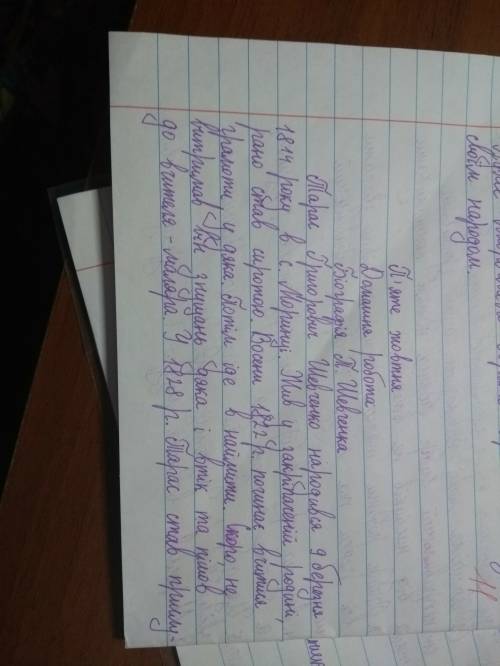 своїм народом.
П'яте жовтня
Домашня робота
Біографія Т. Шевченка
Тарас Григорович Шевченко народився 9 березня
1814 року в с. Моринці. Жив у закріпаченій родині,
рано став сиротою. Восени 1822 р. починає вчитися
грамоти у дяка. Потім іде в найми. Скоро, не
витримав знущань дяка і втік та пішов
до вчителя - маляра. У 1828 р. Тарас став прислу-
11